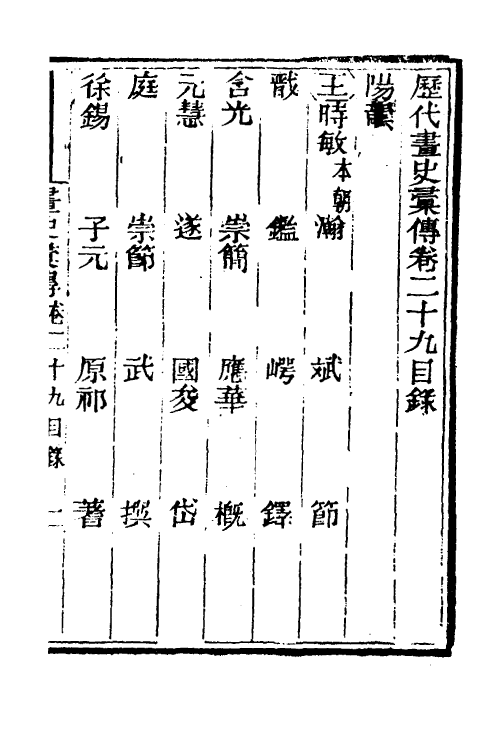 歷代畫史彙傳卷二十九目錄
陽韻
王時敏本朝 瀚 斌 節
戩 鑑 崿 鐸
含光 崇簡 應華 概
元慧 遂 國㚇 岱
庭 崇節 武 撰
徐錫 子元 原祁 蓍
畫史彙傳卷二十九目錄 一